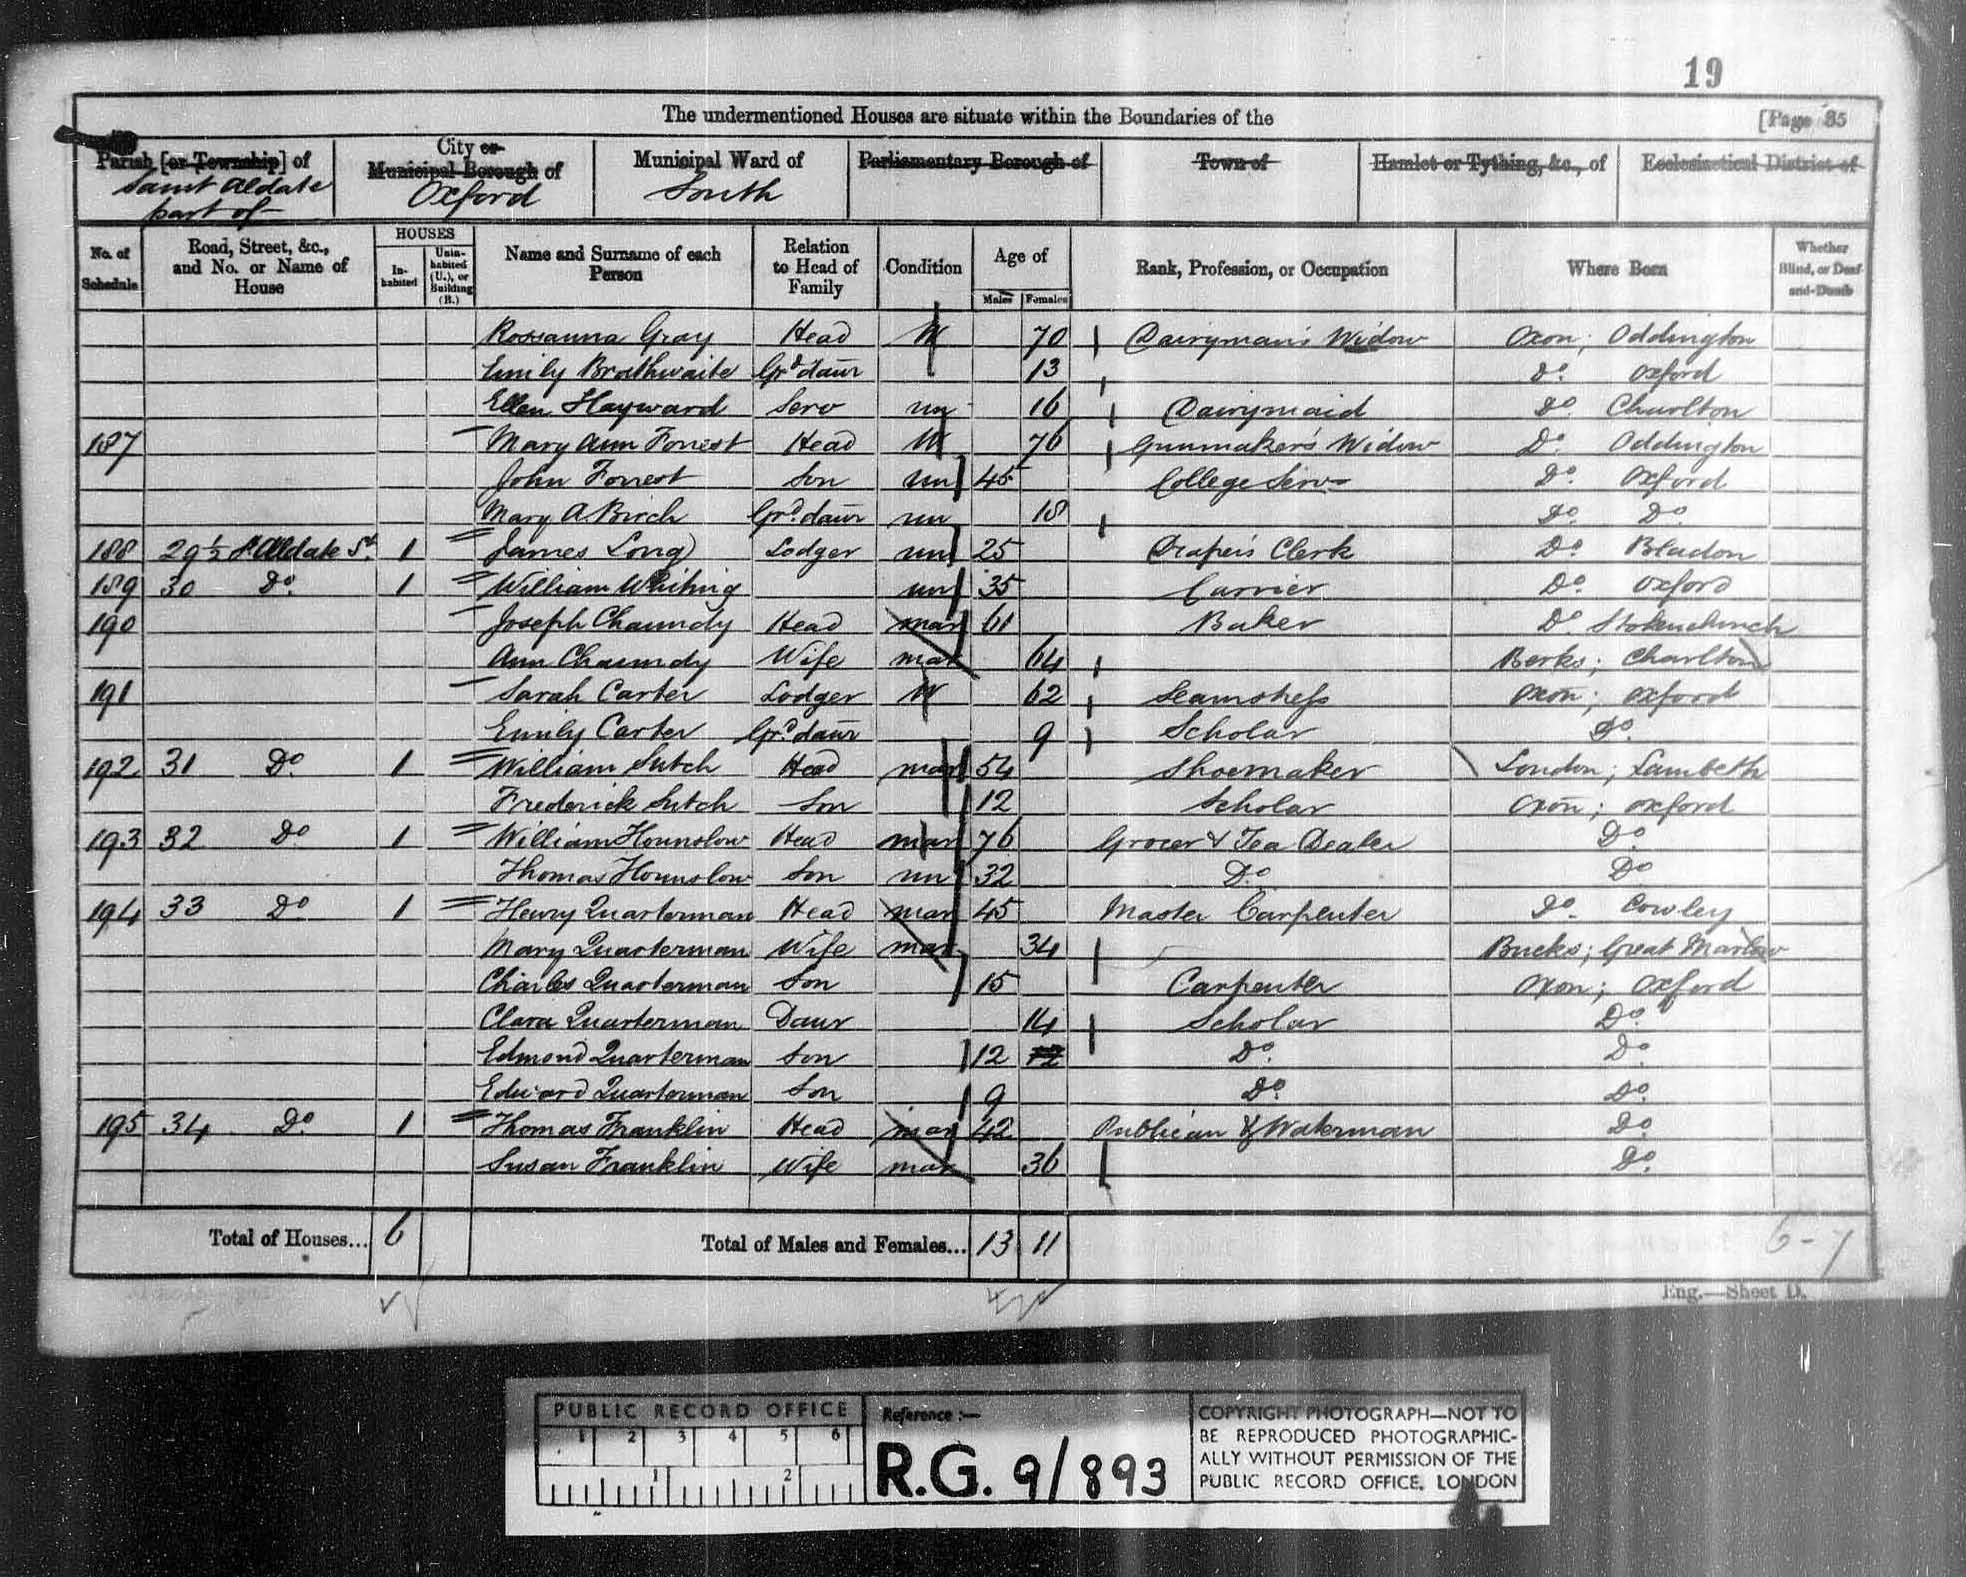 19
The undermentioned Houses are situate within the Boundaries of the [Page 35
Parish [or Township] of City or Municipal Borough of Municipal Ward of Parliamentary Borough of Town of Hamlet or Tything, &c., of Ecclesiastical District of
Saint Aldate part of Oxford South
No. of Schedule Road, Street, &c., and No. or Name of House HOUSES Inhabited Uninhabited (U.), or Building (B.) Name and Surname of each Person Relation to Head of Family Condition Age of Males Females Rank, Profession, or Occupation Where Born Whether Blind, or Deaf-and-Dumb
Rossanna Gray Head W 70 Dairyman's Widow Oxon; Oddington
Emily Brathwaite Grd daur 13 Do. Oxford
Ellen Hayward Serv un 16 Dairymaid Do. Charlton
187 Mary Ann Forrest Head W 76 Gunmaker's Widow Do. Oddington
John Forrest Son un 45 College Serv Do. Oxford
Mary A Birch Grd. daur un 18 Do. Do.
188 29½ St Aldate St. 1 James Long Lodger un 25 Draper's Clerk Do. Bladon
189 30 Do. 1 William Whiting un 35 Carrier Do. Oxford
190 Joseph Chaundy Head mar 61 Baker Do. Stokenchurch
Ann Chaundy Wife mar 64 Berks; Charlton
191 Sarah Carter Lodger W 62 Seamstress Oxon; Oxford
Emily Carter Grd. daur 9 Scholar Do.
192 31 Do. 1 William Sutch Head mar 54 Shoemaker London; Lambeth
Frederick Sutch Son 12 Scholar Oxon; Oxford
193 32 Do 1 William Hounslow Head mar 76 Grocer & Tea Dealer Do.
Thomas Hounslow Son un 32 Do. Do
194 33 Do 1 Henry Quarterman Head mar 45 Master Carpenter Do. Cowley
Mary Quarterman Wife mar 34 Bucks; Great Marlow
Charles Quarterman Son 15 Carpenter Oxon; Oxford
Clara Quarterman Daur 14 Scholar Do.
Edmond Quarterman Son 12 12 Do. Do.
Edward Quarterman Son 9 Do. Do.
195 34 Do. 1 Thomas Franklin Head mar 42 Publican & Waterman Do.
Susan Franklin Wife mar 36 Do.
Total of Houses... 6 Total of Males and Females... 13 11 6-7
Eng.—Sheet D.
PUBLIC RECORD OFFICE
1 2 3 4 5 6
1 2
Reference:—
R.G. 9/893
COPYRIGHT PHOTOGRAPH—NOT TO
BE REPRODUCED PHOTOGRAPHIC-
ALLY WITHOUT PERMISSION OF THE
PUBLIC RECORD OFFICE, LONDON